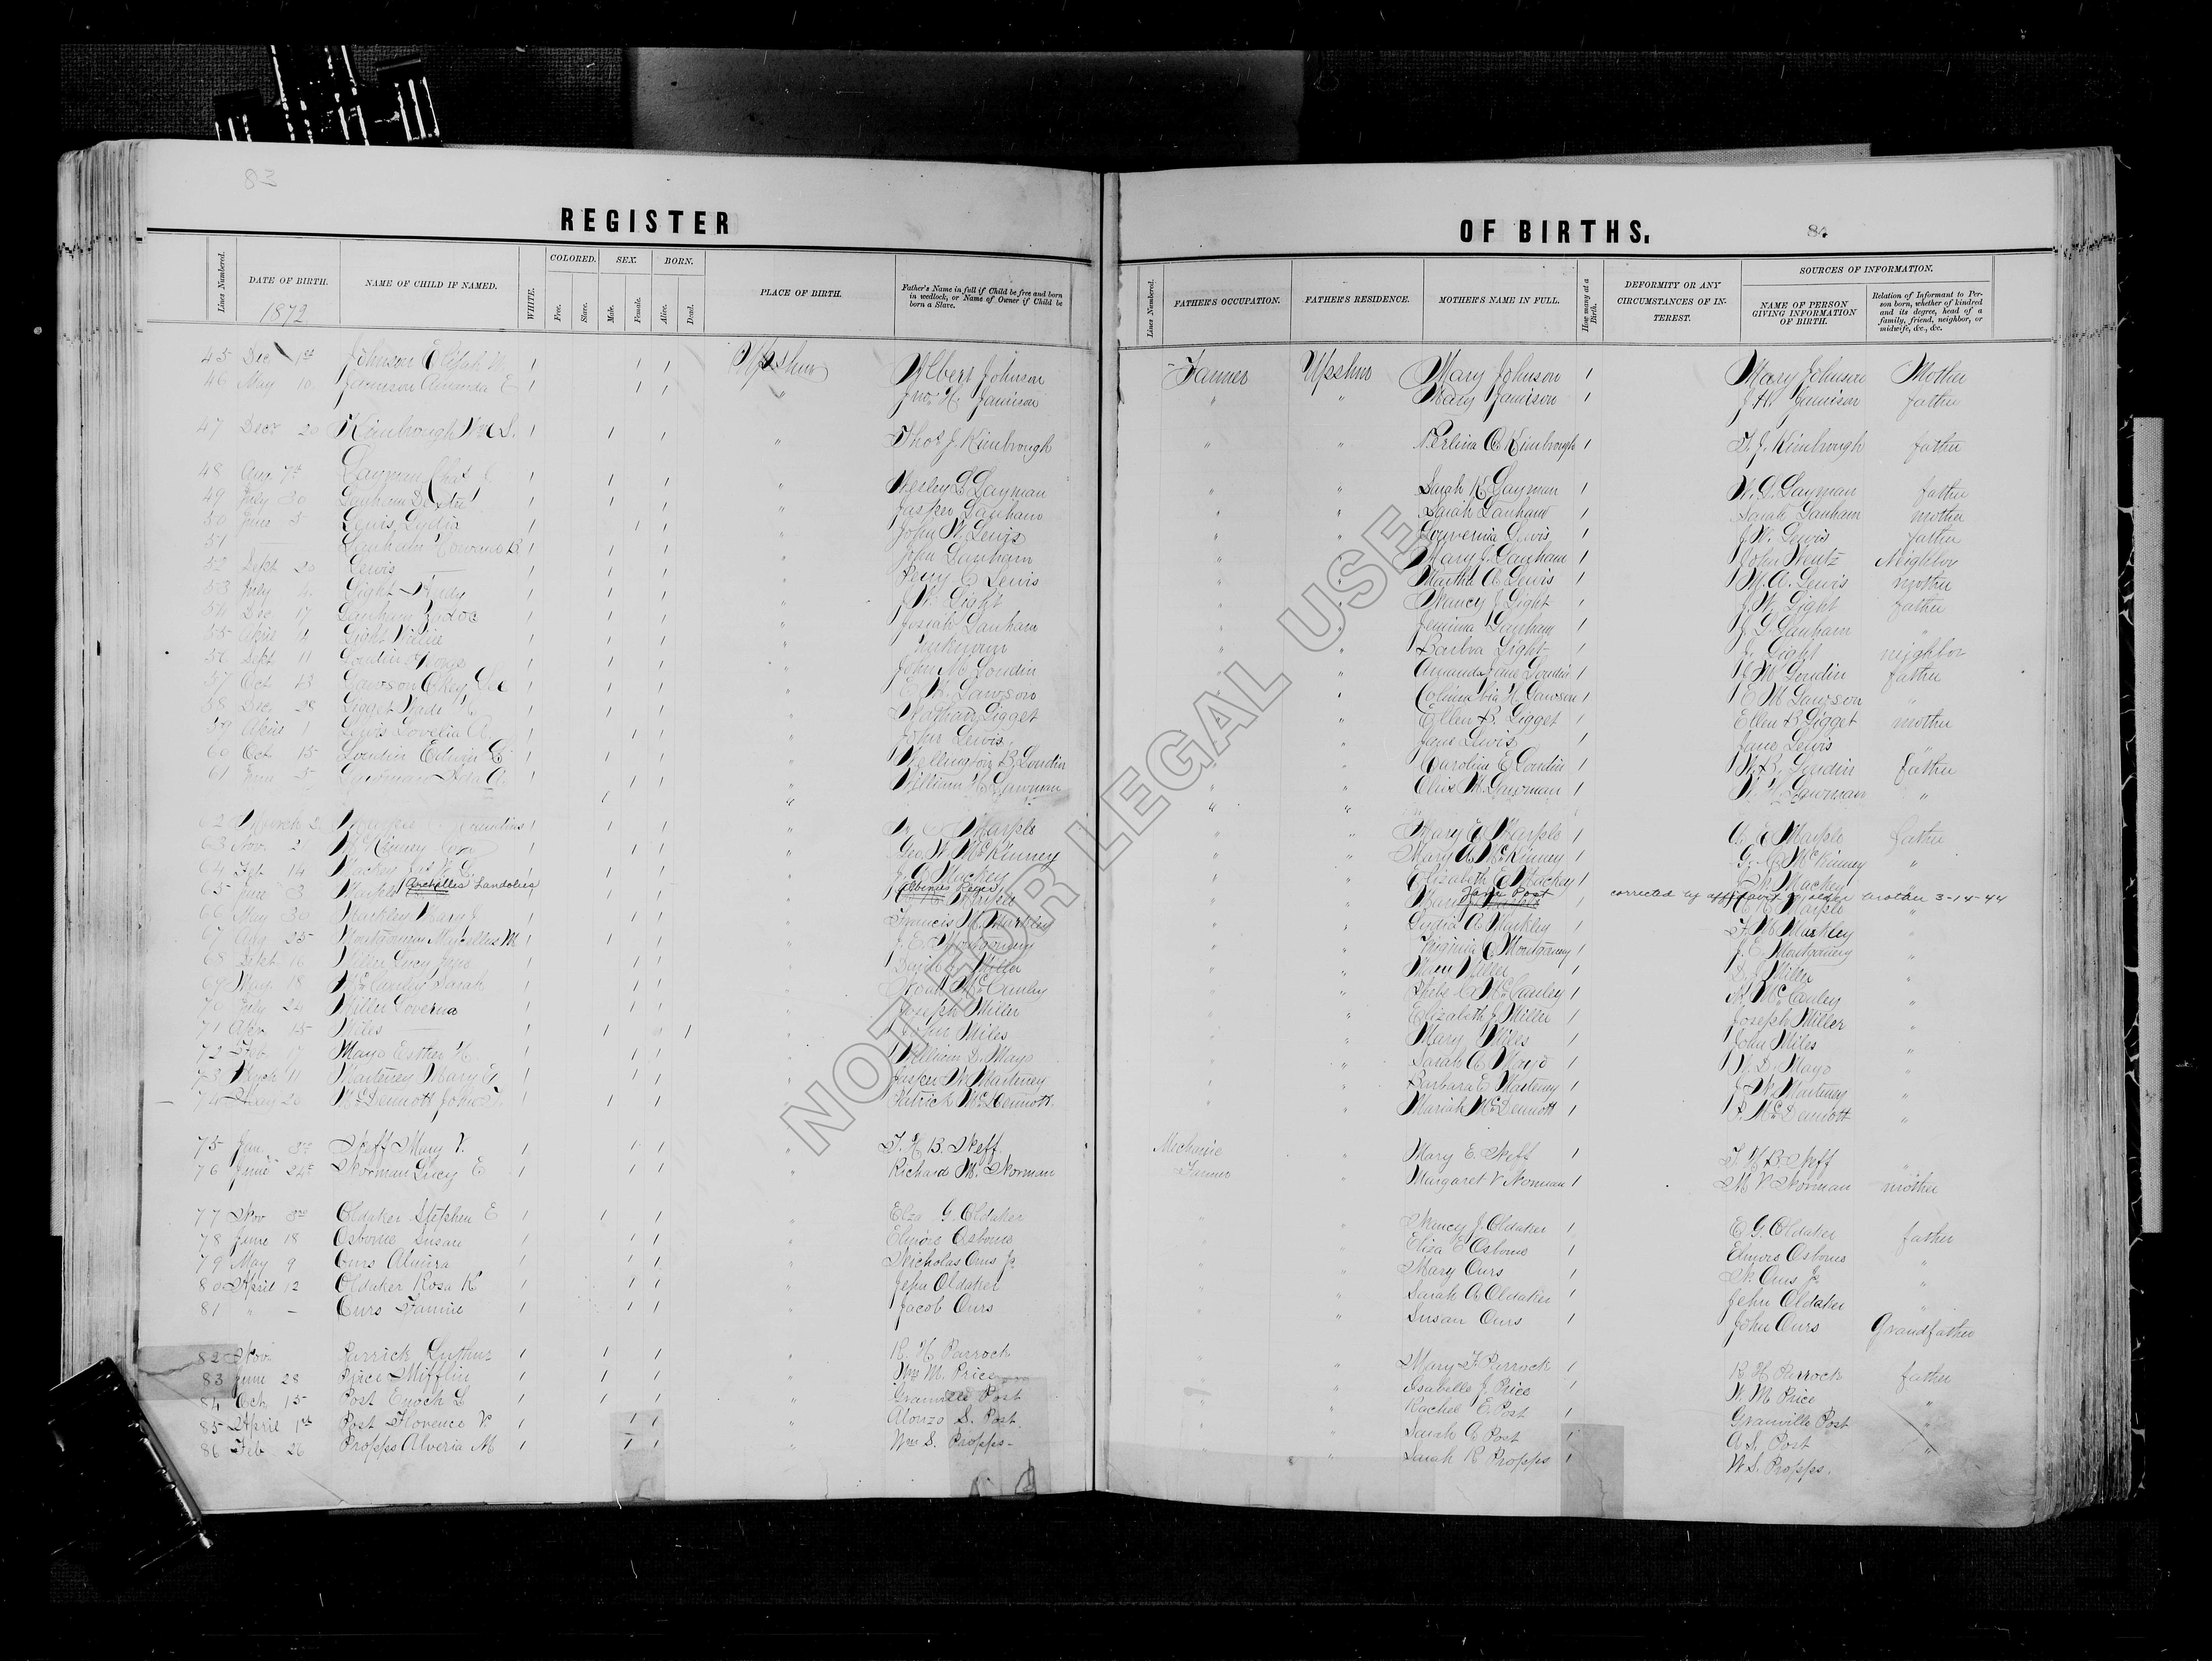 83
REGISTER
Lines Numbered.
DATE OF BIRTH.
1872
NAME OF CHILD IF NAMED.
WHITE.
COLORED.
Free.
Slave.
SEX.
Male.
Female.
BORN.
Alive.
Dead.
PLACE OF BIRTH.
Father's Name in full if Child be free and born
in wedlock, or Name of Owner if Child be
born a Slave.
45 Dec 1st Johnson Elijah 1 1 1 Upshur Albert Johnson
46 May 10 Jamison Amanda E 1 1 1 " Jno. H. Jamison
47 Decr 20 Kimbrough Wm S. 1 1 1 " Thos J. Kimbrough
48 Aug 7th Layman Chas 1 1 1 " Wesley D Layman
49 July 30 Lanham 1 1 1 " Jasper Lanham
50 June 5 Lewis Lydia 1 1 1 " John W. Lewis
51 Lanham Howard B 1 1 1 " John Lanham
52 Sept 20 Lewis 1 1 1 " Perry C Lewis
53 July 4 Light 1 1 1 " J. W. Light
54 Dec 17 Lanham Zadoc 1 1 1 " Josiah Lanham
55 April 4 Light 1 1 1 " Unknown
56 Sept 11 Loudin 1 1 1 " John M. Loudin
57 Oct 13 Lawson Okey Lee 1 1 1 " E. M. Lawson
58 Dec 28 Ligget Wade H. 1 1 1 " Nathan Ligget
59 April 1 Lewis Lovelia A. 1 1 1 " John Lewis
60 Oct 15 Loudin Edwin E 1 1 1 " Wellington B. Loudin
61 June 5 Lawman Ida A. 1 1 1 " William H. Lawman
62 March 2 Marple 1 1 1 " Marple
63 Nov. 2 McKinney Cora 1 1 1 " Geo. W. McKinney
64 Feb 14 Mackey 1 1 1 " J. Mackey
65 June 3 Archilles Landolies 1 1 1 " Albinus Reger
66 May 30 Markley Mary J. 1 1 1 Francis M. Markley
67 Aug 25 Montgomery Mycellus M 1 1 1 J. E. Montgomery
68 Sept 16 Miller Lucy Jane 1 1 1 Miller
69 May 18 McCauley Sarah 1 1 1 Noah McCauley
70 July 24 Miller Loverna 1 1 1 Joseph Miller
71 Apr. 15 Miles 1 1 1 John Miles
72 Feb. 17 Mayo Esther H. 1 1 1 William D. Mayo
73 March 11 Marteney Mary E. 1 1 1 Jasper W. Marteney
74 May 20 McDermott John 1 1 1 Patrick McDermott
75 Jan. 3rd Neff Mary V. 1 1 1 " T. H. B. Neff
76 June 24th Norman Lucy E 1 1 1 " Richard M. Norman
77 Nov 3rd Oldaker Stephen E 1 1 1 " Elza G. Oldaker
78 June 18 Osborne Susan 1 1 1 " Elmore Osborne
79 May 9 Ours Almira 1 1 1 " Nicholas Ours Jr
80 April 12 Oldaker Rosa K 1 1 1 " Jehu Oldaker
81 " — Ours Fannie 1 1 1 " Jacob Ours
82 Nov. Parrick Luther 1 1 1 " R. H. Parrock
83 June 28 Price Mifflin 1 1 1 " Wm M. Price
84 Oct. 15 Post Enoch L 1 1 1 " Granville Post
85 April 1st Post Florence V 1 1 1 " Alonzo S. Post.
86 Feb 26 Propps Alveria M 1 1 1 " Wm S. Propps
OF BIRTHS.
84
Lines Numbered.
FATHER'S OCCUPATION.
FATHER'S RESIDENCE.
MOTHER'S NAME IN FULL.
How many at a
Birth.
DEFORMITY OR ANY
CIRCUMSTANCES OF IN-
TEREST.
SOURCES OF INFORMATION.
NAME OF PERSON
GIVING INFORMATION
OF BIRTH.
Relation of Informant to Per-
son born, whether of kindred
and its degree, head of a
family, friend, neighbor, or
midwife, &c., &c.
Farmer Upshur Mary Johnson 1 Mary Johnson Mother
" " Mary Jamison 1 J. H. Jamison father
" " Perlina A Kimbrough 1 T. J. Kimbrough father
" " Sarah K Layman 1 W. D. Layman father
" " Sarah Lanham 1 Sarah Lanham mother
" " Louverna Lewis 1 J. W. Lewis father
Mary J. Lanham 1 John Wentz Neighbor
" Martha A Lewis 1 M. A. Lewis mother
" Nancy J. Light 1 J. W. Light father
" Jemima Lanham 1 J. Lanham "
" " Light 1 J. Light neighbor
" Amanda Jane Loudin 1 J M Loudin father
Columbia H Lawson 1 E M Lawson "
" " Ellen B. Ligget 1 Ellen B Ligget mother
" " Jane Lewis 1 Jane Lewis "
" " Caroline E Loudin 1 W. B. Loudin father
" " M. Lawman 1 W. H. Lawman "
" " Mary E Marple 1 Marple father
" " Mary A McKinney 1 McKinney "
" " Elizabeth E Mackey 1 Mackey "
" " Jane Post 1 corrected by affidavit of older brother 3-14-44
" " Lydia A Markley 1 F. M Markley "
" " Virginia Montgomery 1 J. E. Montgomery "
" " Miller 1 Miller "
" " Phebe A McCauley 1 N. McCauley "
" " Elizabeth J. Miller 1 Joseph Miller "
" " Mary Miles 1 John Miles "
" " Sarah A Mayo 1 W. D. Mayo "
" " Barbara E Marteney 1 J. W. Marteney "
" " Mariah McDermott 1 P. McDermott "
Mechanic " Mary E. Neff 1 T. H. B. Neff "
Farmer " Margaret V Norman 1 M V Norman mother
" " Nancy J. Oldaker 1 E. G. Oldaker father
" " Eliza E Osborne 1 Elmore Osborne "
" " Mary Ours 1 N. Ours Jr "
" " Sarah A Oldaker 1 Jehu Oldaker "
" " Susan Ours 1 John Ours Grandfather
" " Mary F Parrock 1 R H Parrock father
" " Isabelle J. Price 1 W. M Price "
" " Rachel E. Post 1 Granville Post "
" " Sarah C Post 1 A S. Post "
" " Sarah R Propps 1 W. S. Propps.
NOT FOR LEGAL USE